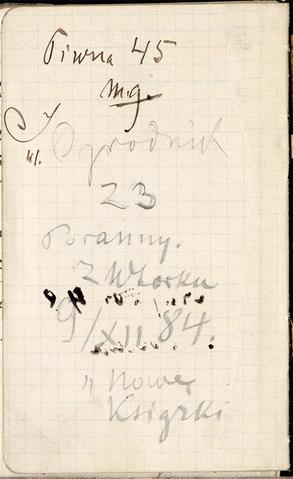 Piwna 45
m.g.
Ogrodnik
23
Poranny.
z Wtorku
9/XII 84.
" Nowe
Książki